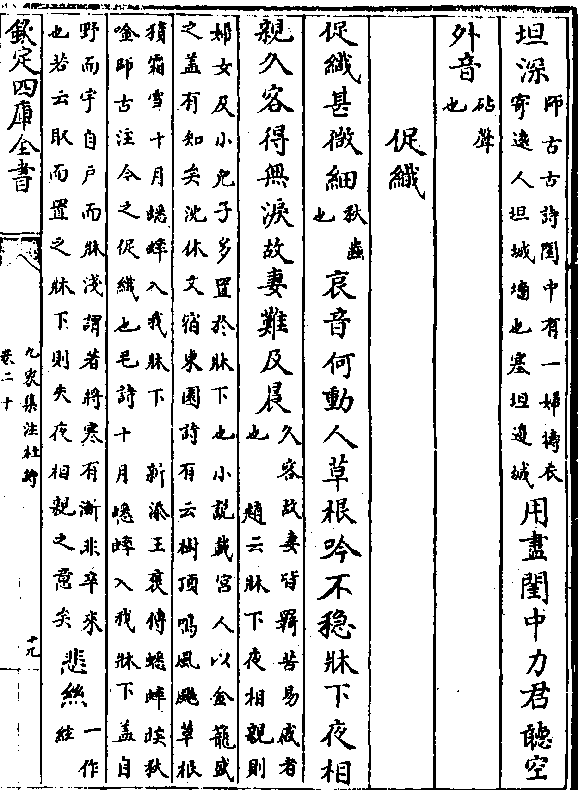 坦深
師古古詩閨中有一婦擣衣
寄遠人坦城墻也塞坦邊城
用盡閨中力君聽空
外音
砧聲
也
促織
促織甚微細
秋蟲
也
哀音何動人草根吟不穩牀下夜相
親久客得無淚故妻難及晨
久客故妻皆羈苦易感者
也 趙云牀下夜相親則
婦女及小兒子多置於牀下也小説載宮人以金籠盛
之蓋有知矣沈休文宿東園詩有云樹頂鳴風飈草根
積霜雪十月蟋蟀入我牀下 新添王襃傳蟋蟀俟秋
唫師古注今之促織也毛詩十月蟋蟀入我牀下蓋自
野而宇自戶而牀淺謂著將寒有漸非卒來
也若云取而置之牀下則失夜相親之意矣
悲絲
一作
絃
欽定四庫全書
九家集注杜詩
卷二十
十九